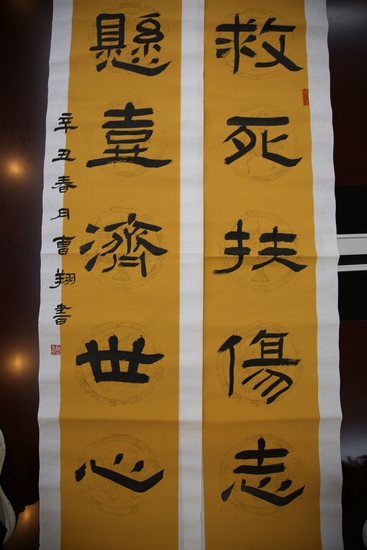 救死扶傷志
懸壺濟世心
辛丑春月曹翔書